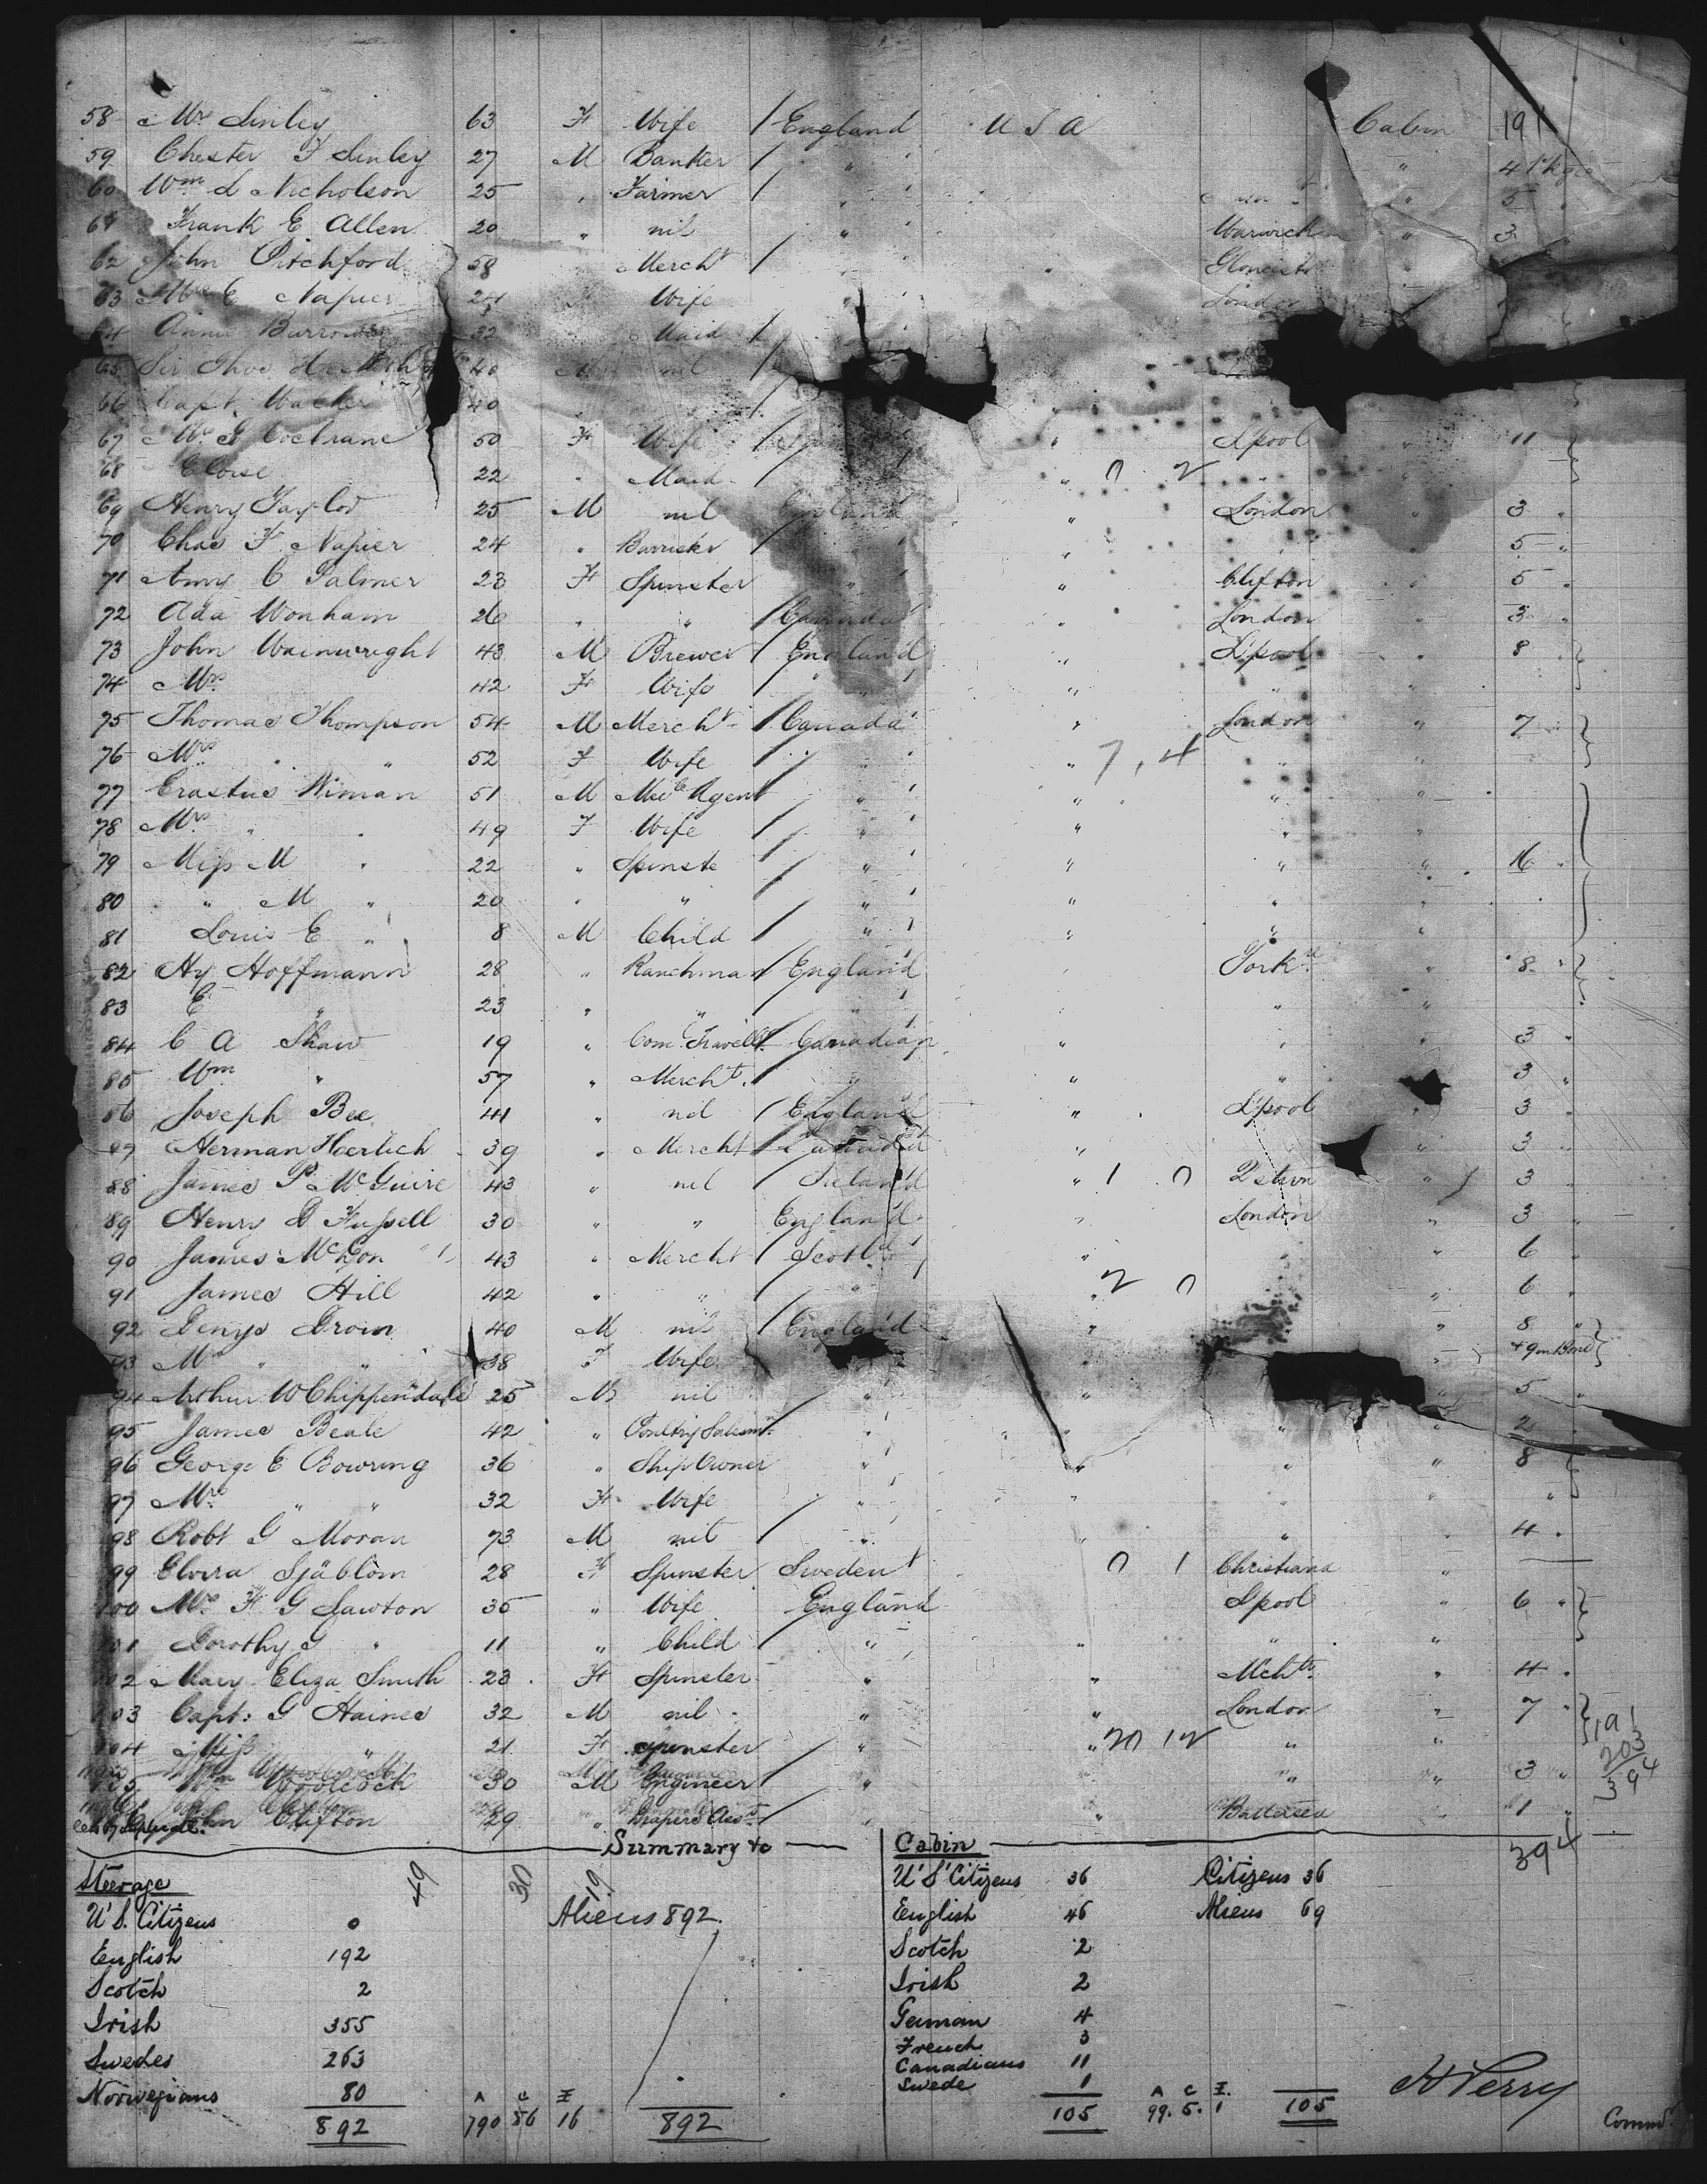 58 Mrs Linley 63 F Wife / England U S A Cabin 19
59 Chester F Linley 27 M Banker / " " 4 Pkgs
60 Wm L Nicholson 25 " Farmer / " " 5
61 Frank E Allen 20 " nil " Warwick " 3
62 John Pitchford 58 Mercht / Gloucest
63 Mrs E Napier 24 Wife London
64 Annie Burrows 32 Maid /
65 Sir Thos 40 M nil /
66 Capt. 40 /
67 Mrs Cochrane 50 F Wife / " Lpool " 11
68 Eloise 22 " Maid / " 0 2 " "
69 Henry Taylor 25 M nil England " London 3 "
70 Chas F Napier 24 " Barrister / " " " 5 "
71 Amy C Palmer 23 F Spinster " " Clifton " 5 "
72 Ada Wonham 26 " " / Canada " London " 3 "
73 John Wainwright 43 M Brewer / England " L'pool " 8 "
74 Mrs 42 F Wife / " " " "
75 Thomas Thompson 54 M Mercht / Canada " London " 7 "
76 Mrs " " 52 F Wife / " " 7, 4 " "
77 Erastus Wiman 51 M Agent / " " " "
78 Mrs " " 49 F Wife / " " " "
79 Miss M " 22 " Spinste / " " " " 16 "
80 " M " 20 " " / " " " "
81 Louis E " 8 M Child / " " " "
82 Hy Hoffmann 28 " Ranchman / England " York " 8 "
83 E " 23 " " / " " "
84 C A Shaw 19 " Com. Travellr / Canadian " " " 3 "
85 Wm " 57 " Mercht. / " " " 3 "
86 Joseph Bee 41 " nil / England " L'pool " 3 "
87 Herman 39 " Mercht / " " 3 "
88 James P. McGuire 43 " nil Ireland " 1 0 Qstwn " 3 "
89 Henry D Fussell 30 " " England " London " 3 "
90 James McGon 43 " Mercht / Scotld " " " 6 "
91 James Hill 42 " " / " " 2 0 " 6 "
92 Denys 40 M nil / England " " 8 "
93 Mrs " " 38 F Wife " "
94 Arthur W Chippendale 25 M nil / " " " 5 "
95 James Beale 42 " Poultry Salesmn / " " " " 2
96 George E Bowring 36 " Ship Owner / " " " " 8
97 Mrs " " 32 F Wife / " " " "
98 Robt G Moran 73 M nil / " " " " 4 "
99 Elvira Sjäblom 28 F Spinster Sweden 0 1 Christiana "
100 Mrs F G Lawton 35 " Wife / England Lpool " 6 "
101 Dorothy G " 11 " Child / " " " "
102 Mary Eliza Smith 23 F Spinster / " " Mchtr " 4 "
103 Capt: G Haines 32 M nil / " " London " 7 "
104 Miss " 21 F Spinster / " " 20 12 " "
191
203
394
105 Wm Woolcock 30 M Engineer / " " " 3 "
John Clifton 29 " Drapers Asst / " " Battersea " 1 "
Summary &c
394
Steerage 49 30 19
U.S. Citizens 0 Aliens 892.
English 192
Scotch 2
Irish 355
Swedes 263
Norwegians 80
A C I
892 790 86 16 892
Cabin
U.S. Citizens 36 Citizens 36
English 46 Aliens 69
Scotch 2
Irish 2
German 4
French 3
Canadians 11
Swede 1
A C I.
105 99. 5. 1 105
H Perry
Commdr